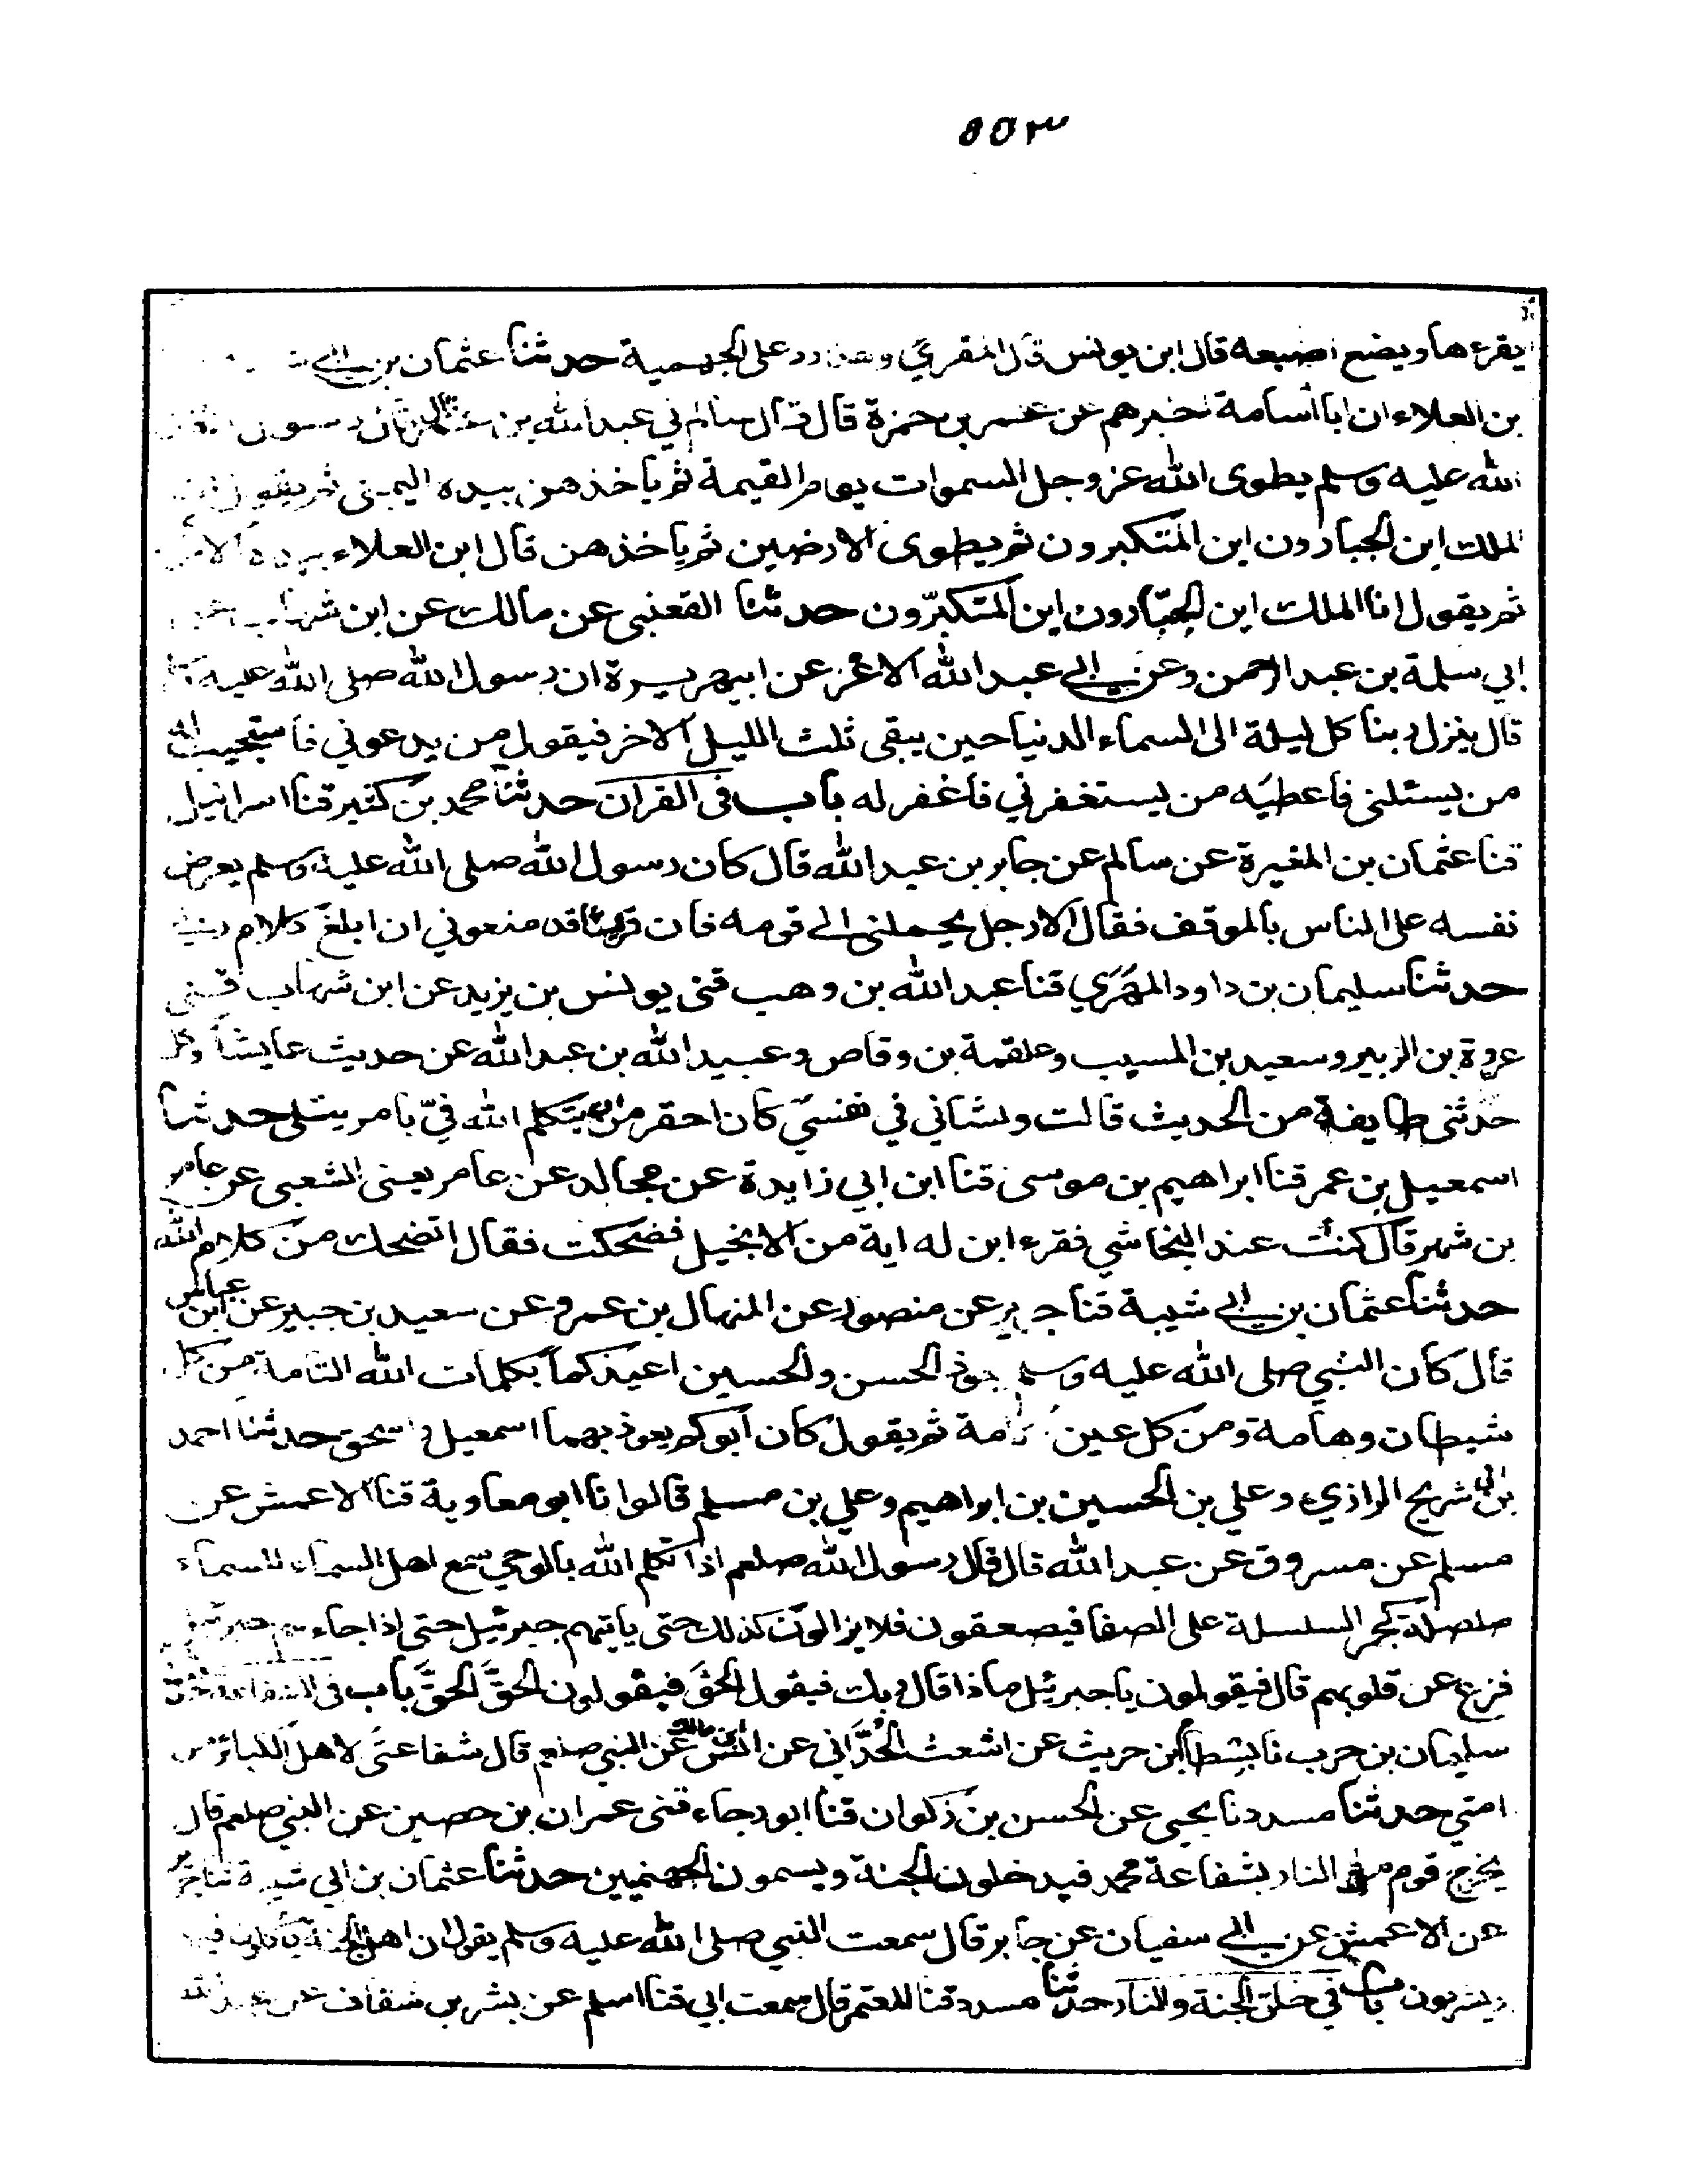 ٥٥٣
يقرءها ويضع اصبعه قال ابن يونس قال المقري وهذا رد على الجهمية حدثنا عثمان بن ابي
بن العلاء ان ابا اسامة اخبرهم عن عمر بن حمزة قال قال سالم اخبرني عبد الله بن عمر قال قال رسول
الله عليه وسلم يطوى الله عز وجل السموات يوم القيمة ثم ياخذهن بيده اليمنى ثم يقول انا
الملك اين الجبارون اين المتكبرون ثم يطوى الارضين ثم ياخذهن قال ابن العلاء بيده الاخرى
ثم يقول انا الملك اين الجبّارون اين المتكبرّون حدثنا القعنبى عن مالك عن ابن شهاب عن
ابي سلمة بن عبد الرحمن وعن ابي عبد الله الاغر عن ابيهريرة ان رسول الله صلى الله عليه
قال ينزل ربنا كل ليلة الى السماء الدنيا حين يبقى ثلث الليل الاخر فيقول من يدعوني فاستجيب له
من يسئلنى فاعطيه من يستغفرني فاغفر له باب فى القران حدثنا محمد بن كثير قنا اسرائيل
قنا عثمان بن المغيرة عن سالم عن جابر بن عبد الله قال كان رسول الله صلى الله عليه وسلم يعرض
نفسه على الناس بالموقف فقال الا رجل يحملنى الى قومه فان قريشا قد منعوني ان ابلغ كلام ربي
حدثنا سليمان بن داود المهَري قنا عبد الله بن وهب قنى يونس بن يزيد عن ابن شهاب قنى
عروة بن الزبير وسعيد بن المسيب وعلقمة بن وقاص وعبيد الله بن عبد الله عن حديث عايشة وكل
حدّثنى طايفة من الحديث قالت ولشاني في نفسي كان احقر من ان يتكلم الله فيّ بامر يتلى حدثنا
اسمعيل بن عمر قنا ابراهيم بن موسى قنا ابن ابي زايدة عن مجالد عن عامر يعنى الشعبى عن عامر
بن شهر قال كنت عند النجاشي فقرء ابن له اية من الانجيل فضحكت فقال اتضحك من كلام الله
حدثنا عثمان بن ابي شيبة قنا جرير عن منصور عن المنهال بن عمرو عن سعيد بن جبير عن ابن عباس
قال كان النبي صلى الله عليه وسلم يعوذ الحسن والحسين اعيذكما بكلمات الله التامة من كل
شيطان وهامة ومن كل عين لامة ثم يقول كان ابوكم يعوذ بهما اسمعيل واسحق حدثنا احمد
بن ابي شريح الرازي وعلي بن الحسين بن ابراهيم وعلي بن مسلم قالوا نا ابو معاوية قنا الاعمش عن
مسلم عن مسروق عن عبد الله قال قال رسول الله صلعم اذا تكلم الله بالوحي سمع اهل السماء للسماء
صلصلة كجر السلسلة على الصفا فيصعقون فلا يزالون كذلك حتى ياتيهم جبرئيل حتى اذا جاءهم جبرئيل
فزع عن قلوبهم قال فيقولون يا جبرئيل ماذا قال ربك فيقول الحقَ فيقولون الحقَّ الحقَّ باب فى الشفاعة حدثنا
سليمان بن حرب نا بسطام بن حريث عن اشعث الحُدَّاني عن انس بن مالك عن النبي صلعم قال شفاعتى لاهل الكبائر من
امتي حدثنا مسدد نا يحيى عن الحسن بن ذكوان قنا ابو رجاء قنى عمران بن حصين عن النبي صلعم قال
يخرج قوم من النار بشفاعة محمد فيدخلون الجنة ويسمون الجهنميين حدثنا عثمان بن ابي شيبة قنا جرير
عن الاعمش عن ابي سفيان عن جابر قال سمعت النبي صلى الله عليه وسلم يقول ان اهل الجنة ياكلون فيها
ويشربون باب في خلق الجنة والنار حدثنا مسدد قنا المعتمر قال سمعت ابي قنا اسلم عن بشر بن شغاف عن عبد الله